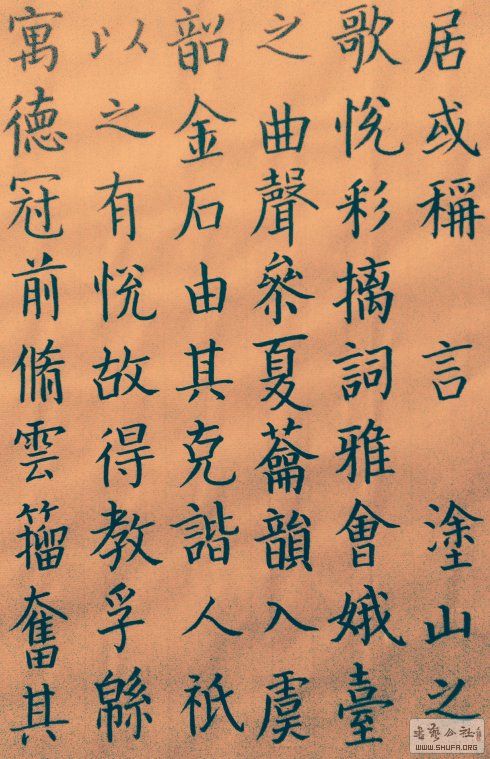 居或稱 言 塗山之
歌悅彩摛詞雅會娥臺
之曲聲叅夏蘥韻入虞
韶金石由其克諧人祇
以之有悅故得教孚緜
寓德冠前脩雲籕奮其
書藝公社
WWW.SHUFA.ORG